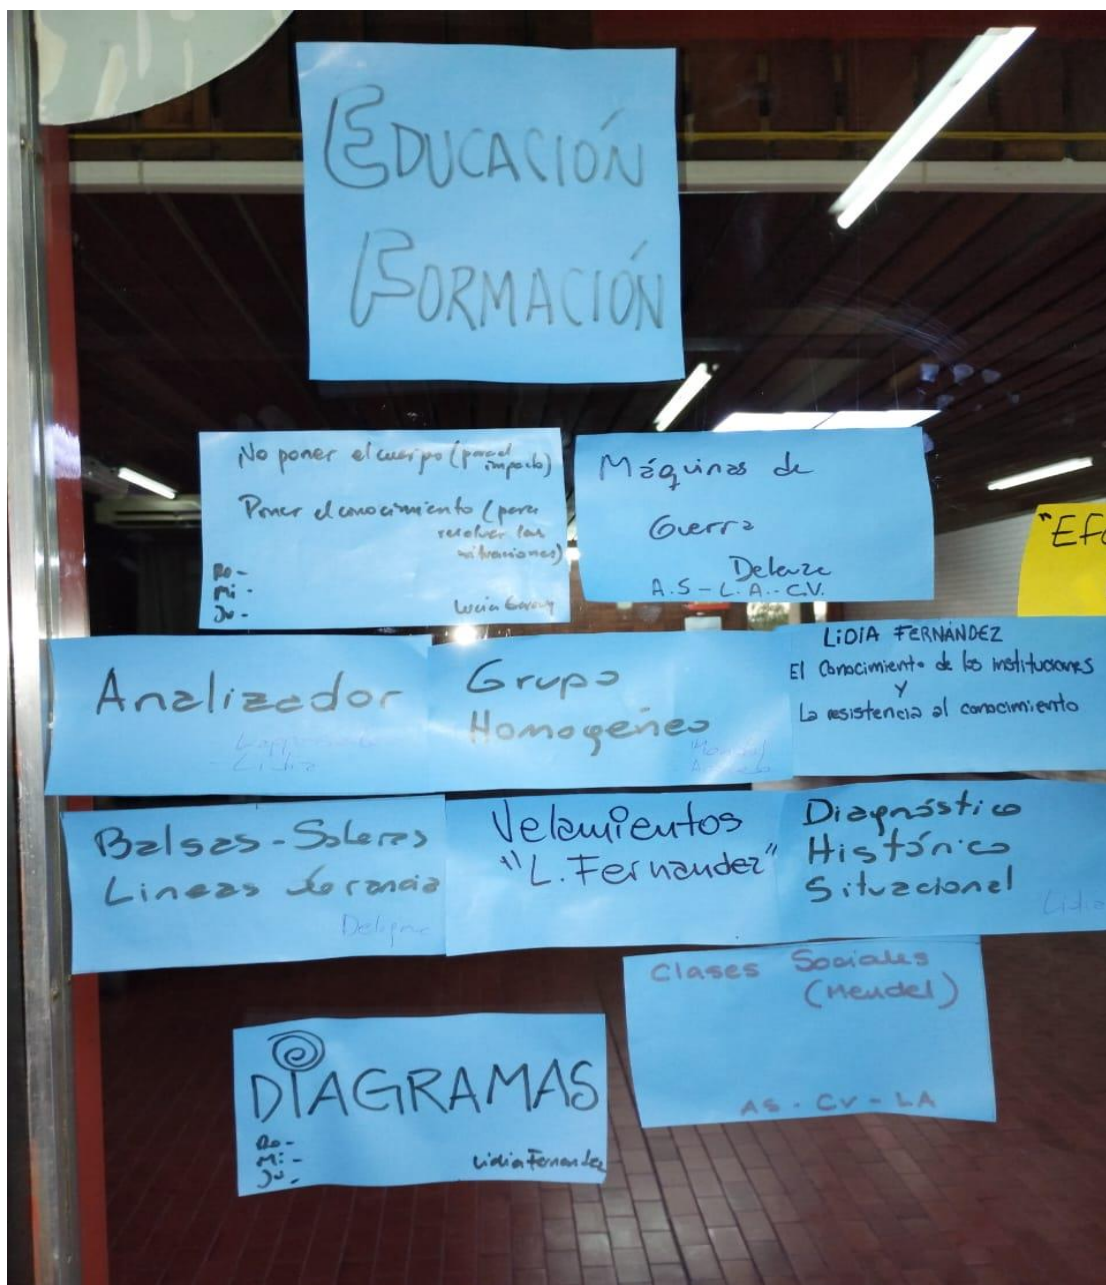 EDUCACIÓN
FORMACIÓN
No poner el cuerpo (para el
impacto)
Poner el conocimiento (para
resolver las
situaciones)
Ro-
Mi-
Ju-
Lucía Garay
Máquinas de
Guerra
Deleuze
A.S - L.A.- C.V.
"Efe
Analizador
Lidia
Grupo
Homogeneo
LIDIA FERNÁNDEZ
El Conocimiento de las instituciones
Y
La resistencia al conocimiento
Balsas - Soleras
Lineas
Velamientos
"L. Fernandez"
Diagnóstico
Histórico
Situacional
Lidia
Clases Sociales
(Mendel)
AS - CV - LA
DIAGRAMAS
Ro-
Mi-
Ju-
Lidia Fernandez